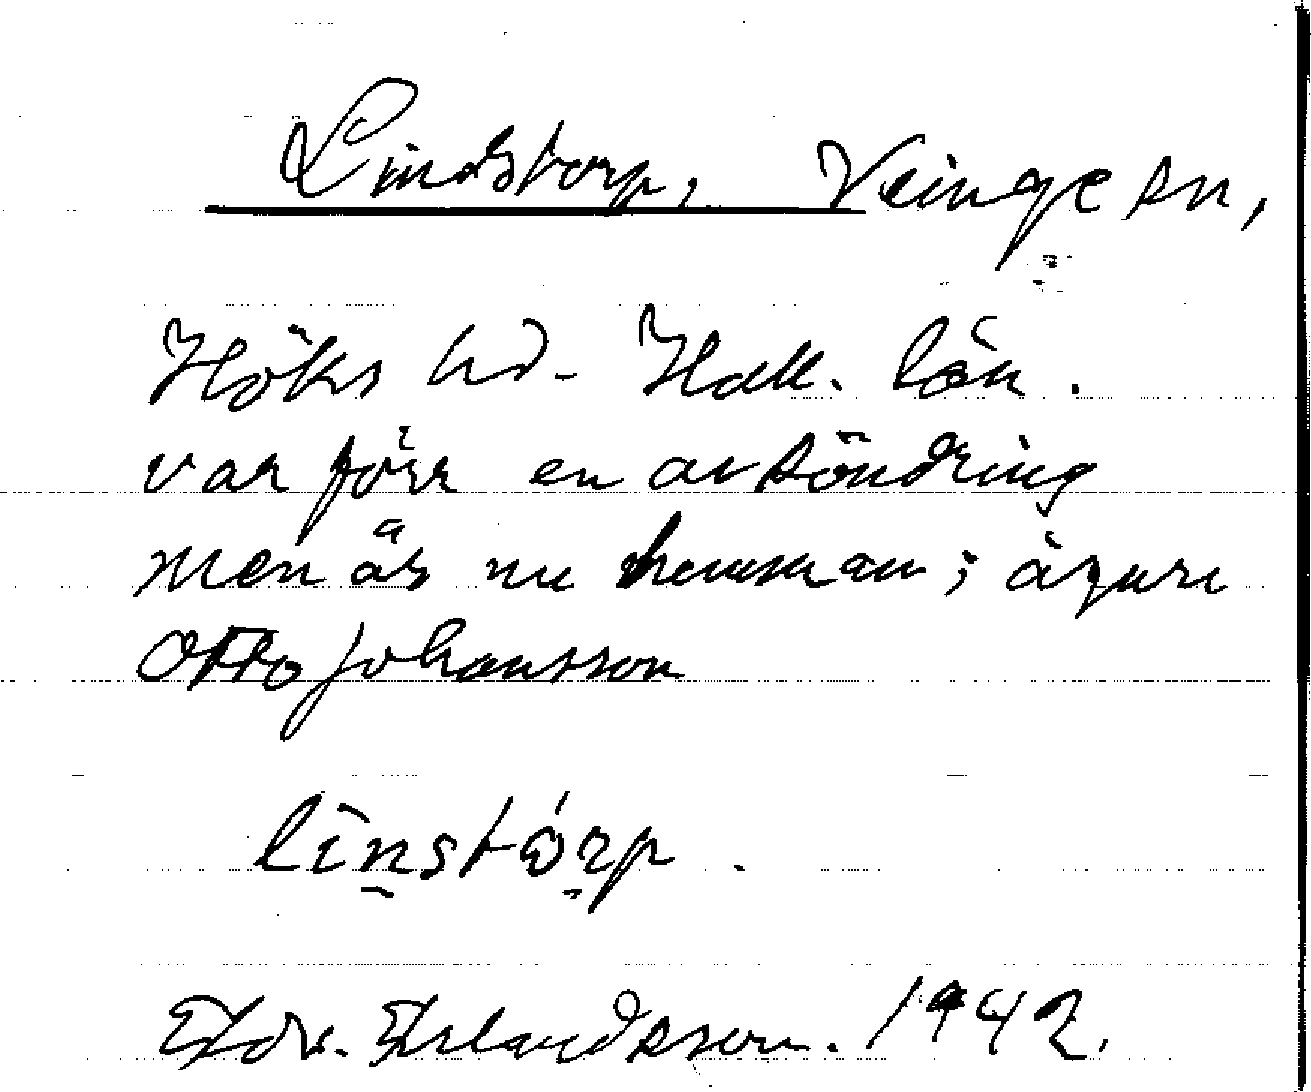 Lindstorp, Veinge sn,
Höks hd. Hall. län.
var förr en avsöndring
men är nu hemman; ägare
Otto Johansson
linstórp.
Edv. Erlandsson. 1942.